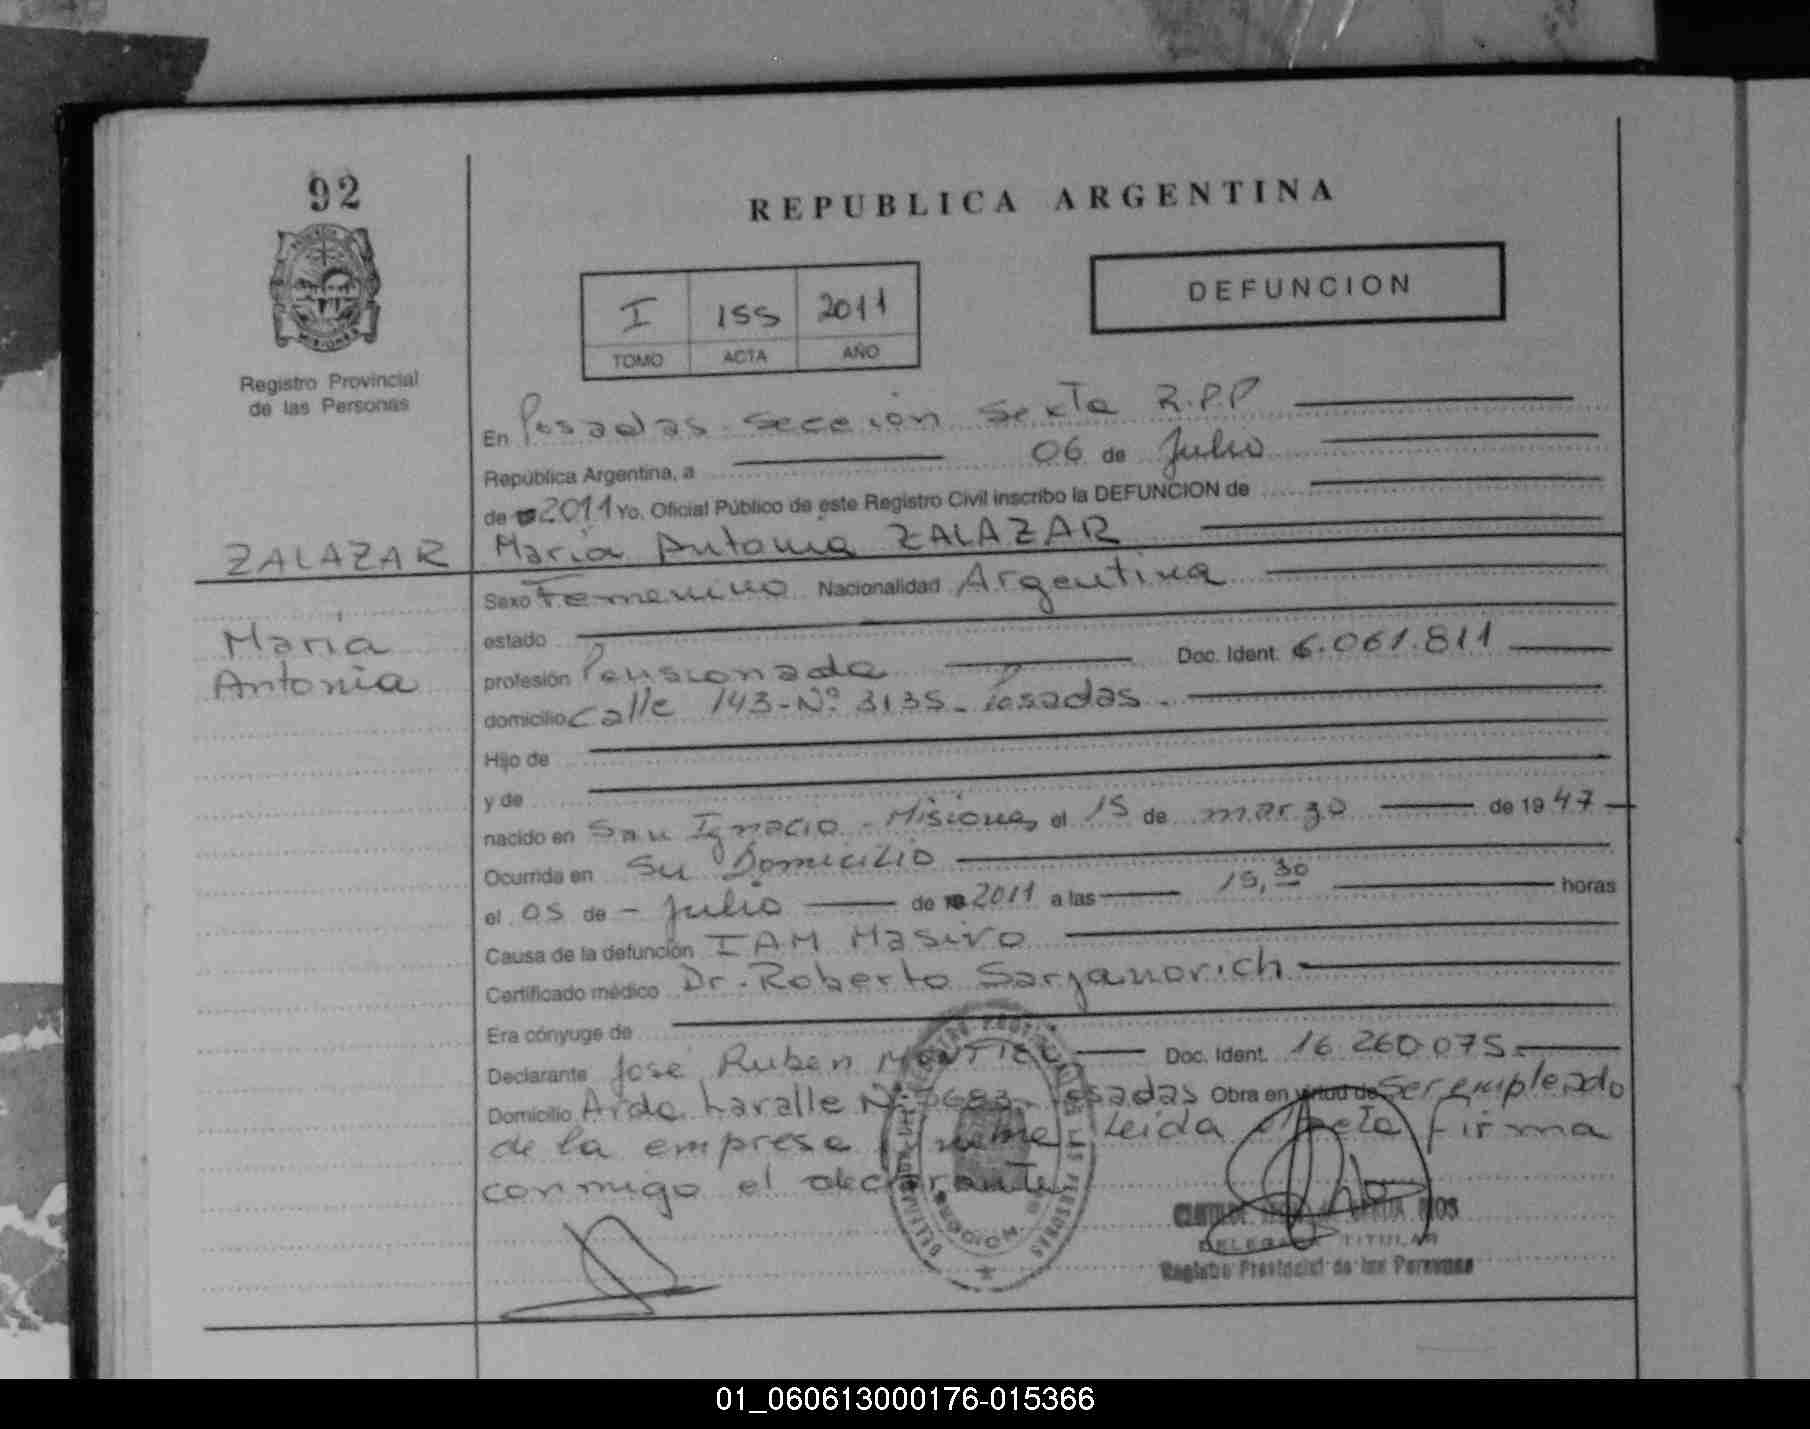 92
REPUBLICA ARGENTINA
DEFUNCION
I 155 2011
TOMO ACTA AÑO
Registro Provincial
de las Personas
En Posadas Sección Sexta R.P.P
República Argentina, a 06 de Julio
de 2011 Yo, Oficial Público de este Registro Civil inscribo la DEFUNCION de
ZALAZAR María Antonia ZALAZAR
Sexo Femenino Nacionalidad Argentina
María
Antonia
estado
profesión Pensionada Doc. Ident. 6.061.811
domicilio Calle 143-Nº 3135- Posadas.
Hijo de
y de
nacido en San Ignacio - Misiones el 15 de marzo de 1947
Ocurrida en Su Domicilio
el 05 de - Julio de 2011 a las 15,30 horas
Causa de la defunción IAM Masivo
Certificado médico Dr. Roberto Sarjanovich
Era cónyuge de
Declarante José Ruben MONTIEL Doc. Ident. 16.260.075.
Domicilio Avda. Lavalle Nº Posadas Obra en virtud de Ser empleado
de la empresa Leida el acta firma
conmigo el declarante
RIOS
DELEGADA TITULAR
Registro Provincial de las Personas
01_060613000176-015366